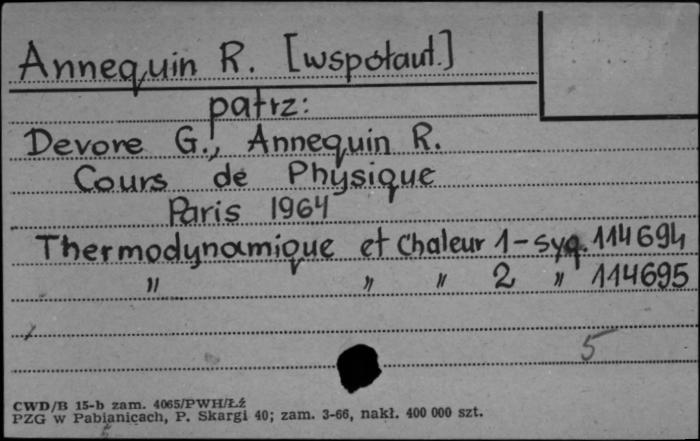 Annequin R. [współaut.]
patrz:
Devore G., Annequin R.
Cours de Physique
Paris 1964
Thermodynamique et Chaleur 1 - syg. 114694
" " " 2 " 114695
5
CWD/B 15-b zam. 4065/PWH/Łź
PZG w Pabianicach, P. Skargi 40; zam. 3-66, nakł. 400 000 szt.